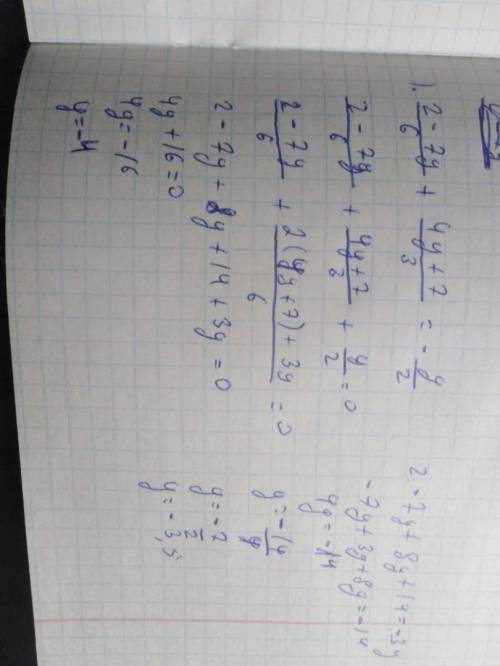 1. (2 - 7y)/6 + (4y + 7)/3 = - y/2
(2 - 7y)/6 + (4y + 7)/3 + y/2 = 0
(2 - 7y)/6 + (2(4y + 7) + 3y)/6 = 0
2 - 7y + 8y + 14 + 3y = 0
4y + 16 = 0
4y = -16
y = -4
2 - 7y + 8y + 14 = -3y
-7y + 3y + 8y = -14
4y = -14
y = -14/4
y = -7/2
y = -3,5